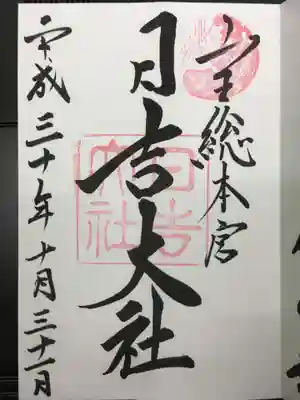 山王総本宮
日吉大社
平成三十年十月三十一日
日吉大社